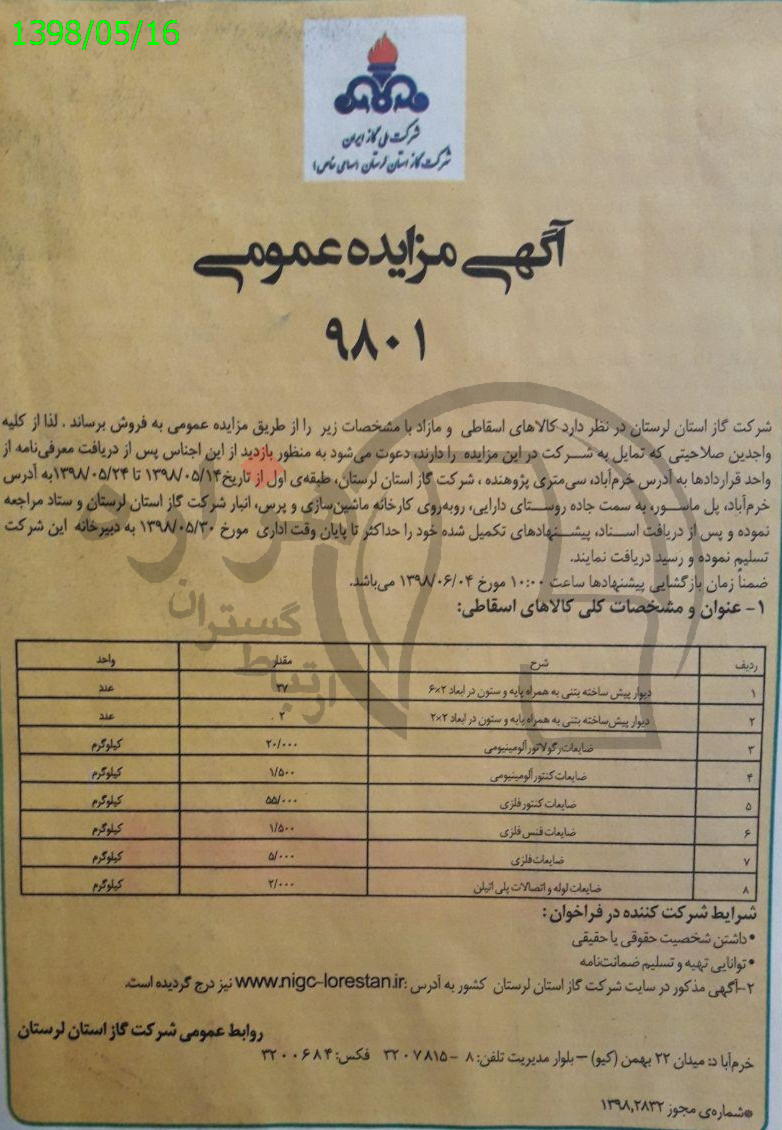 1398/05/16
شرکت ملی گاز ایران
شرکت گاز استان لرستان (سهامی خاص)
آگهی مزایده عمومی
۹۸۰۱
شرکت گاز استان لرستان در نظر دارد کالاهای اسقاطی و مازاد با مشخصات زیر را از طریق مزایده عمومی به فروش برساند . لذا از کلیه
واجدین صلاحیتی که تمایل به شـرکت در این مزایده را دارند، دعوت می‌شود به منظور بازدید از این اجناس پس از دریافت معرفی‌نامه از
واحد قراردادها به آدرس خرم‌آباد، سی‌متری پژوهنده ، شرکت گاز استان لرستان، طبقه‌ی اول از تاریخ۱۳۹۸/۰۵/۱۴ تا ۱۳۹۸/۰۵/۲۴به آدرس
خرم‌آباد، پل ماسـور، به سمت جاده روسـتای دارایی، روبه‌روی کارخانه ماشین‌سازی و پرس، انبار شرکت گاز استان لرستان و ستاد مراجعه
نموده و پس از دریافت اسـناد، پیشـنهادهای تکمیل شده خود را حداکثر تا پایان وقت اداری مورخ ۱۳۹۸/۰۵/۳۰ به دبیرخانه این شرکت
تسلیم نموده و رسید دریافت نمایند.
ضمناً زمان بازگشایی پیشنهادها ساعت ۱۰:۰۰ مورخ ۱۳۹۸/۰۶/۰۴ می‌باشد.
۱- عنوان و مشخصات کلی کالاهای اسقاطی:
ردیف شرح مقدار واحد
۱ دیوار پیش ساخته بتنی به همراه پایه و ستون در ابعاد ۲×۶ ۲۷ عدد
۲ دیوار پیش‌ساخته بتنی به همراه پایه و ستون در ابعاد ۲×۲ ۲۰ عدد
۳ ضایعات رگولاتور آلومینیومی ۲۰/۰۰۰ کیلوگرم
۴ ضایعات کنتور آلومینیومی ۱/۵۰۰ کیلوگرم
۵ ضایعات کنتور فلزی ۵۵/۰۰۰ کیلوگرم
۶ ضایعات فنس فلزی ۱/۵۰۰ کیلوگرم
۷ ضایعات فلزی ۵/۰۰۰ کیلوگرم
۸ ضایعات لوله و اتصالات پلی اتیلن ۲/۰۰۰ کیلوگرم
شرایط شرکت کننده در فراخوان :
•داشتن شخصیت حقوقی یا حقیقی
•توانایی تهیه و تسلیم ضمانت‌نامه
۲-آگهی مذکور در سایت شرکت گاز استان لرستان کشور به آدرس :www.nigc-lorestan.ir نیز درج گردیده است.
روابط عمومی شرکت گاز استان لرستان
خرم‌آباد: میدان ۲۲ بهمن (کیو) – بلوار مدیریت تلفن: ۸ - ۳۲۰۷۸۱۵ فکس: ۳۲۰۰۶۸۴
*شماره‌ی مجوز ۱۳۹۸,۲۸۳۲
گستران
ارتباط